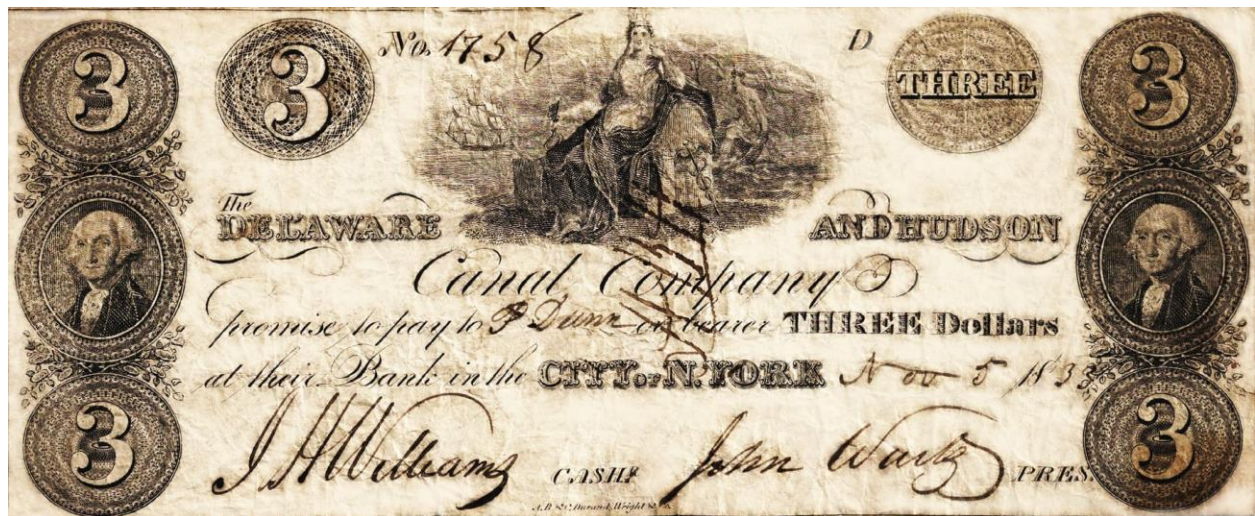 3 3 No. 1758 D THREE 3
The
DELAWARE AND HUDSON
Canal Company
promise to pay to P Dunn or bearer THREE Dollars
at their Bank in the CITY OF N. YORK Nov 5 183
3 3
J H Williams CASHR. John Wurts PRES.
A. B. & C. Durand, Wright &